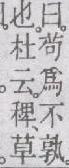 曰。苟爲不孰
也。杜云。稗、草